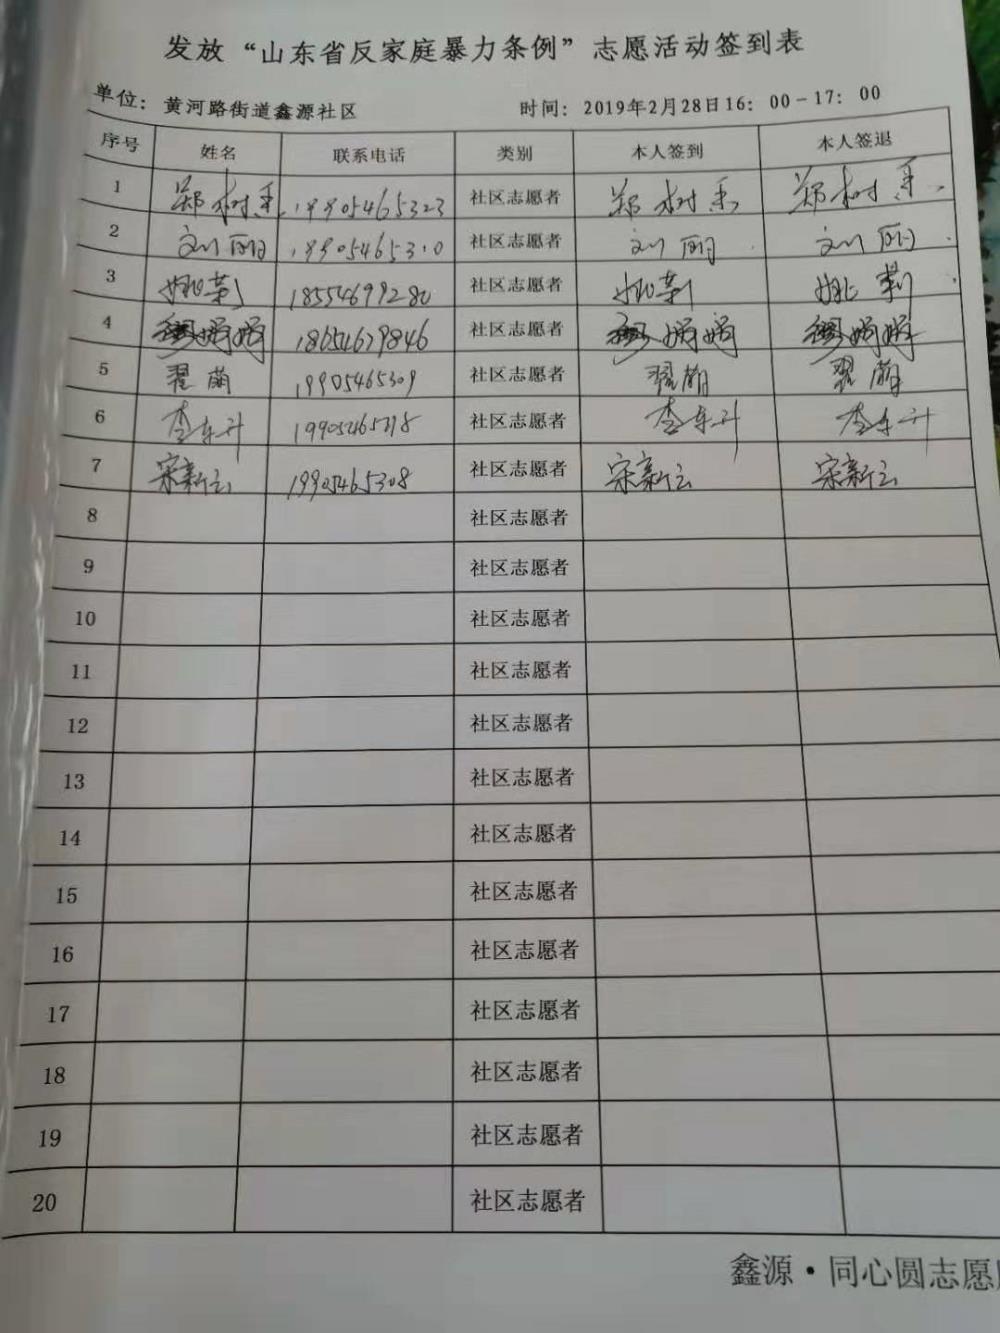 发放“山东省反家庭暴力条例”志愿活动签到表
单位：黄河路街道鑫源社区 时间：2019年2月28日16：00-17：00
序号 姓名 联系电话 类别 本人签到 本人签退
1 郑树 19905465323 社区志愿者 郑树 郑树
2 刘丽 19905465310 社区志愿者 刘丽 刘丽
3 姚莉 18554699280 社区志愿者 姚莉 姚莉
4 穆娟娟 18654679846 社区志愿者 穆娟娟 穆娟娟
5 翟萌 19905465309 社区志愿者 翟萌 翟萌
6 李东升 社区志愿者 李东升 李东升
7 宋新云 19905465308 社区志愿者 宋新云 宋新云
8 社区志愿者
9 社区志愿者
10 社区志愿者
11 社区志愿者
12 社区志愿者
13 社区志愿者
14 社区志愿者
15 社区志愿者
16 社区志愿者
17 社区志愿者
18 社区志愿者
19 社区志愿者
20 社区志愿者
鑫源·同心圆志愿